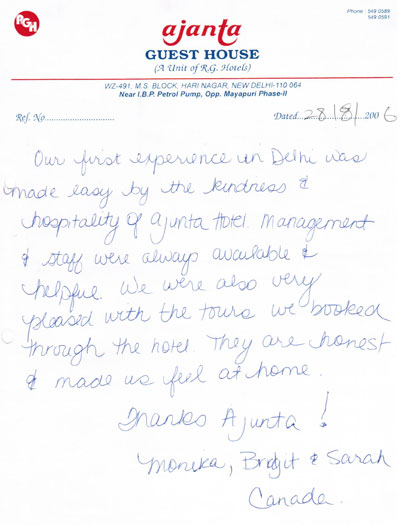 RGH
Phone : 549 0589
549 0591
ajanta
GUEST HOUSE
(A Unit of R.G. Hotels)
WZ-491, M.S. BLOCK, HARI NAGAR, NEW DELHI-110 064
Near I.B.P. Petrol Pump, Opp. Mayapuri Phase-II
Ref. No.......................... Dated...28/8/...2006
Our first experience in Delhi was
made easy by the kindness &
hospitality of ajunta Hotel. Management
& staff were always available &
helpful. We were also very
pleased with the tours we booked
through the hotel. They are honest
& made us feel at home.
Thanks Ajunta !
Monika, Bridgit & Sarah
Canada.